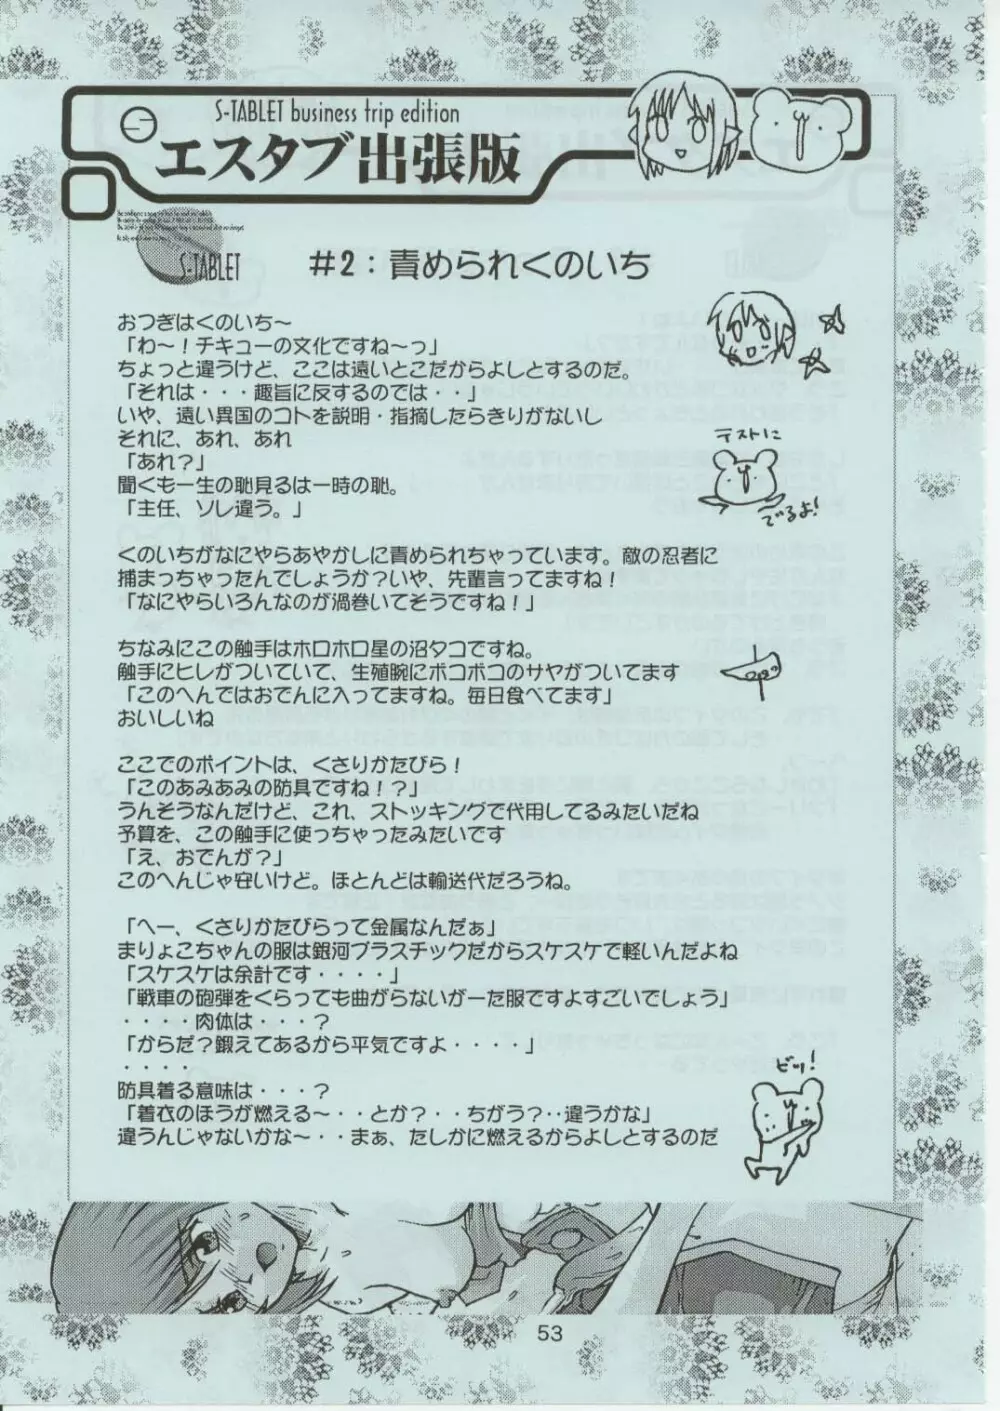 S-TABLET business trip edition
エスタブ出張版
S-TABLET
#2：責められくのいち
おつぎはくのいち～
「わ～！チキューの文化ですね～っ」
ちょっと違うけど、ここは遠いとこだからよしとするのだ。
「それは・・・趣旨に反するのでは・・」
いや、遠い異国のコトを説明・指摘したらきりがないし
それに、あれ、あれ
「あれ？」
聞くも一生の恥見るは一時の恥。
「主任、ソレ違う。」
テストに
でるよ!
くのいちがなにやらあやかしに責められちゃっています。敵の忍者に
捕まっちゃったんでしょうか？いや、先輩言ってますね！
「なにやらいろんなのが渦巻いてそうですね！」
ちなみにこの触手はホロホロ星の沼タコですね。
触手にヒレがついていて、生殖腕にボコボコのサヤがついてます
「このへんではおでんに入ってますね。毎日食べてます」
おいしいね
ここでのポイントは、くさりかたびら！
「このあみあみの防具ですね！？」
うんそうなんだけど、これ、ストッキングで代用してるみたいだね
予算を、この触手に使っちゃったみたいです
「え、おでんが？」
このへんじゃ安いけど。ほとんどは輸送代だろうね。
「へー、くさりかたびらって金属なんだぁ」
まりょこちゃんの服は銀河プラスチックだからスケスケで軽いんだよね
「スケスケは余計です・・・・」
「戦車の砲弾をくらっても曲がらないがーた服ですよすごいでしょう」
・・・・肉体は・・・？
「からだ？鍛えてあるから平気ですよ・・・・」
・・・・
防具着る意味は・・・？
「着衣のほうが燃える～・・とか？・・ちがう？・・違うかな」
違うんじゃないかな～・・まぁ、たしかに燃えるからよしとするのだ
ビッ!
53